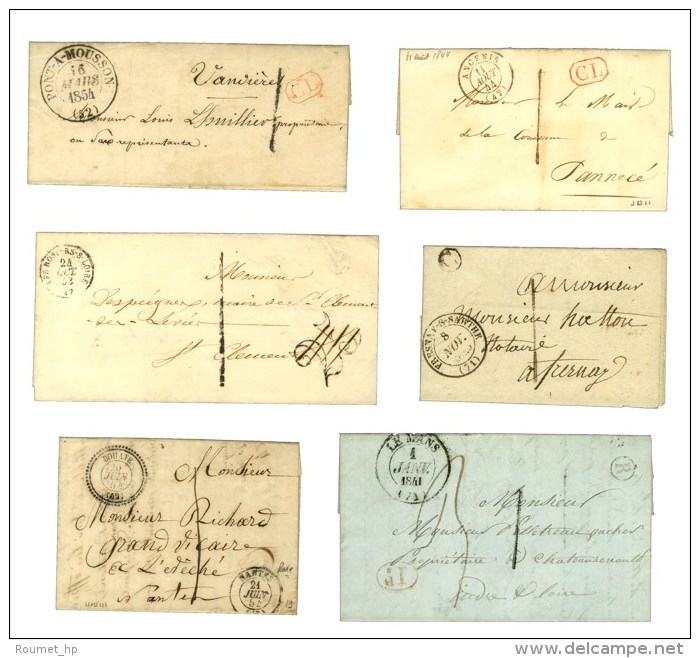 PONT-A-MOUSSON
16
MARS
1854
(52)
CL
Vandières
Monsieur Louis Lhuillier propriétaire
ou ses représentants
11 août 1844
ANCENIS
AOUT
44
CL
Monsieur Le Maire
de la Commune de
Pannecé
24
OCT
Monsieur
Despeignes, maire de St Clément
des Levées
St Clément
FRESNAY-S-SARTHE
8
NOV.
(71)
a monsieur
Monsieur
Notaire
a fernay
ROUANS
20
JUIN
Monsieur
Monsieur Richard
grand Vicaire
à L'évêché
Nantes
NANTES
21
JUIN
LE MANS
4
JANV.
1841
(71)
Monsieur
Monsieur
Propriétaire à Chateaurenault
Indre & Loire
Roumet_hp
© delcampe.net